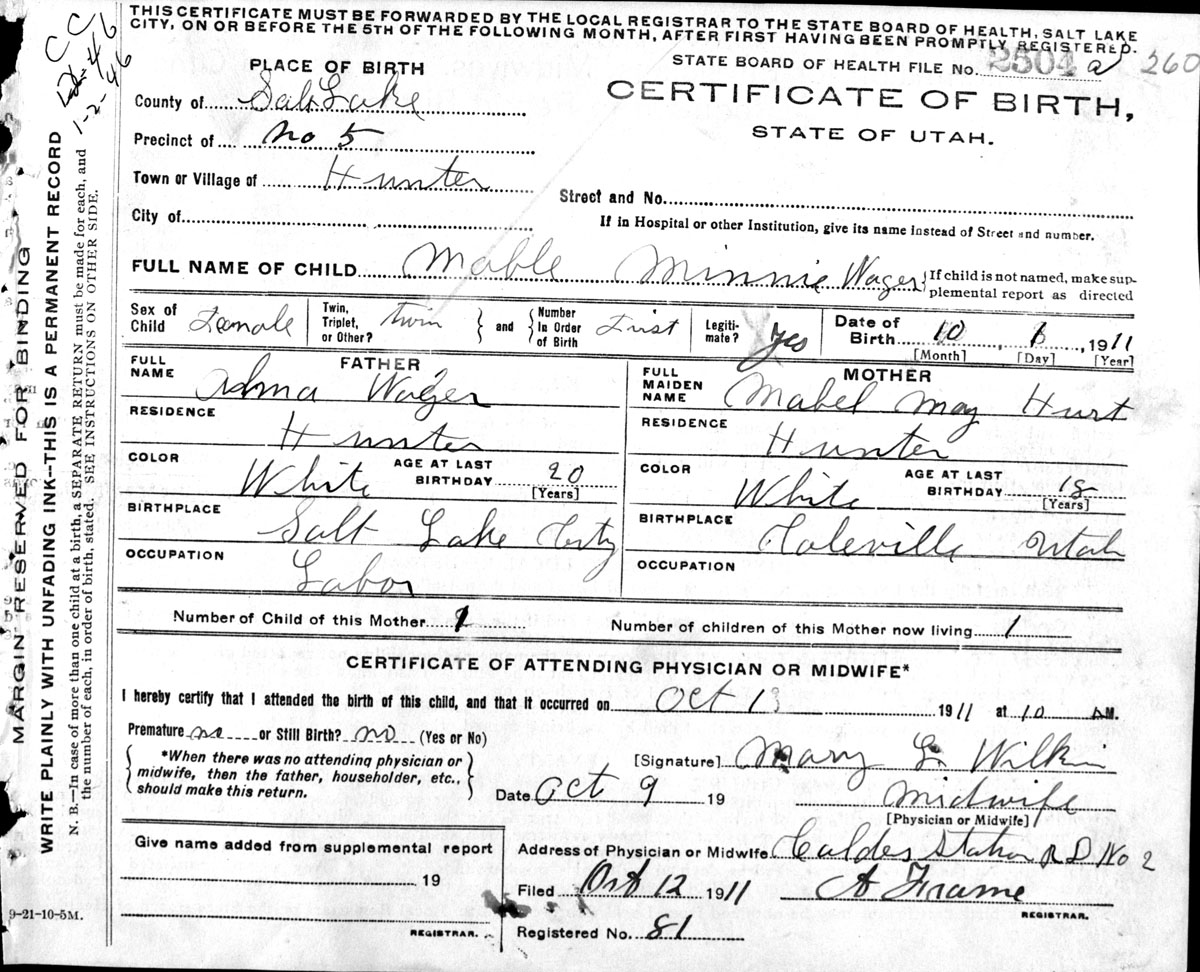 THIS CERTIFICATE MUST BE FORWARDED BY THE LOCAL REGISTRAR TO THE STATE BOARD OF HEALTH, SALT LAKE
CITY, ON OR BEFORE THE 5TH OF THE FOLLOWING MONTH, AFTER FIRST HAVING BEEN PROMPTLY REGISTERED.
STATE BOARD OF HEALTH FILE No. 2504 a 260
CERTIFICATE OF BIRTH,
STATE OF UTAH.
PLACE OF BIRTH
County of Salt Lake
Precinct of No 5
Town or Village of Hunter
City of
Street and No.
If in Hospital or other Institution, give its name instead of Street and number.
FULL NAME OF CHILD Mable Minnie Wager { If child is not named, make sup-
plemental report as directed
Sex of Child Female
Twin, Triplet, or Other? twin } and { Number In Order of Birth First
Legiti-mate? Yes
Date of Birth 10, 1911
[Month] [Day] [Year]
FATHER
FULL NAME Wager
RESIDENCE Hunter
COLOR White AGE AT LAST BIRTHDAY 20 [Years]
BIRTHPLACE Salt Lake City
OCCUPATION Labor
MOTHER
FULL MAIDEN NAME Mabel May Hurt
RESIDENCE Hunter
COLOR White AGE AT LAST BIRTHDAY 18 [Years]
BIRTHPLACE Utah
OCCUPATION
Number of Child of this Mother 1
Number of children of this Mother now living 1
CERTIFICATE OF ATTENDING PHYSICIAN OR MIDWIFE*
I hereby certify that I attended the birth of this child, and that it occurred on Oct 1911 at 10 AM.
Premature no or Still Birth? no (Yes or No)
{ *When there was no attending physician or
midwife, then the father, householder, etc.,
should make this return. }
[Signature] Mary L. Wilkin
Date Oct 9 19
Midwife
[Physician or Midwife]
Give name added from supplemental report
19
REGISTRAR.
Address of Physician or Midwife Station R D No 2
Filed Oct 12 1911 A Frame
REGISTRAR.
Registered No. 81
9-21-10-5M.
MARGIN RESERVED FOR BINDING
WRITE PLAINLY WITH UNFADING INK--THIS IS A PERMANENT RECORD
N. B.—In case of more than one child at a birth, a SEPARATE RETURN must be made for each, and
the number of each, in order of birth, stated. SEE INSTRUCTIONS ON OTHER SIDE.
CC
1-2-46